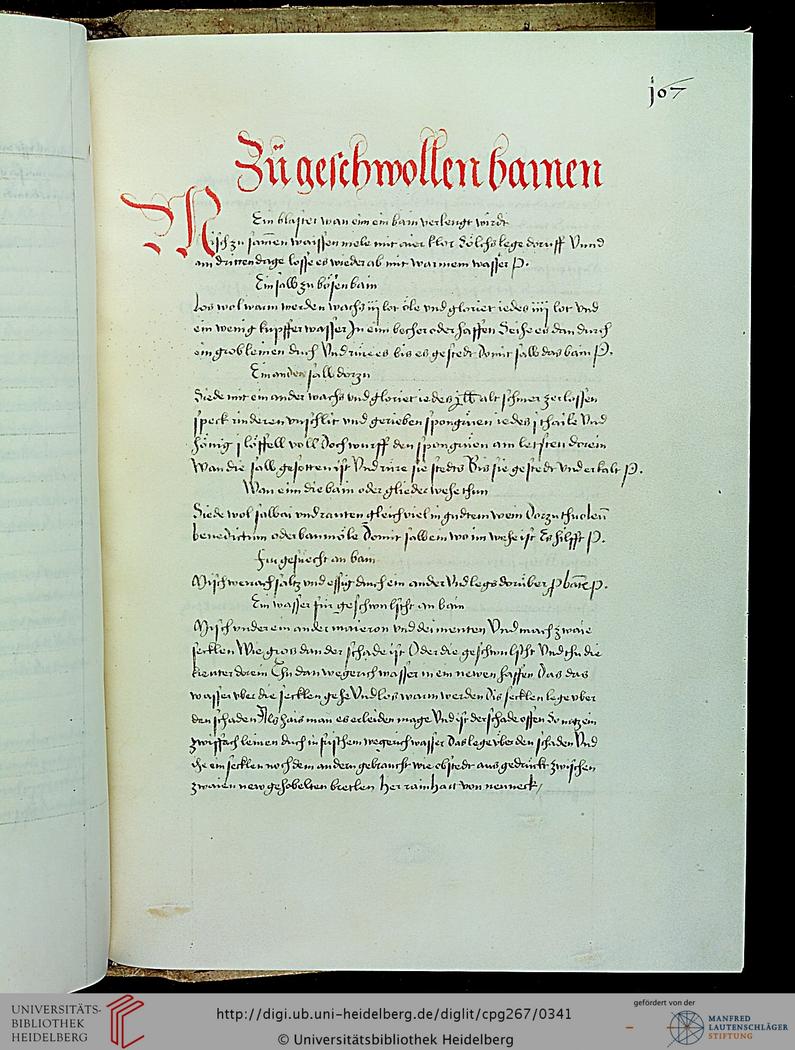 j07
Zü geschwollen bainen
Ein blaster wan eim ein bain verlengt wirdt
Misch zu samen waissen mele mit aier klor Sölchs lege doruff Vnnd
am dritten dage losse es wieder ab mit warmem wasser P.
Ein salb zu bösen bain
Los wol warm werden wachs iij lot öle vnd gloriet iedes iiij lot Vnd
ein wenig kupffer wasser In eim becher oder haffen Seihe es dan durch
ein grob leinen duch Vnd rüre es bis es gestedt Domit salb das bain P.
Ein ander salb dorzu
Siede mit ein ander wachs vnd gloriet iedes j lb alt schmer zerlossen
speck rinderen vnschlit vnd gerieben spongrien iedes j thaile Vnd
hönig j löffell voll Doch wurff den spongrien am letsten dorein
Wan die salb gesotten ist Vnd rüre sie stedts Bis sie gestedt Vnd erkalt P.
Wan eim die bain oder glieder wehe thun
Siede wol salbai vnd rauten gleich viel in gudtem wein Dorzu thu oleum
benedictum oder baumöle Domit salb ein wo im wehe ist Es hilfft P.
Fur gesuecht an bain
Misch weirach saltz vnd essig durch ein ander Vnd legs dorüber P.
Ein wasser fur geschwulscht an bain
Misch vnder ein ander maieron vnd deimenten Vnd mach zwaie
secklen Wie gros dan der schade ist Oder die geschwulscht Vnd thu die
kreuter dorein Thu dan wegerich wasser in ein newen haffen Das das
wasser vber die secklen gehe Vnd los warm werden Dis secklen lege vber
den schaden Als hais man es erleiden mage Vnd ist der schade offen so netz ein
zwiffach leinen duch in frischem wegerich wasser Das lege vber den schaden Vnd
ihe ein secklen noch dem andern gebraucht wie obstedt aus gedruckt zwischen
zwaien new gehobelten bretlen Her rainhart von nenneck
UNIVERSITÄTS-
BIBLIOTHEK
HEIDELBERG
http://digi.ub.uni-heidelberg.de/diglit/cpg267/0341
© Universitätsbibliothek Heidelberg
gefördert von der
MANFRED
LAUTENSCHLÄGER
STIFTUNG